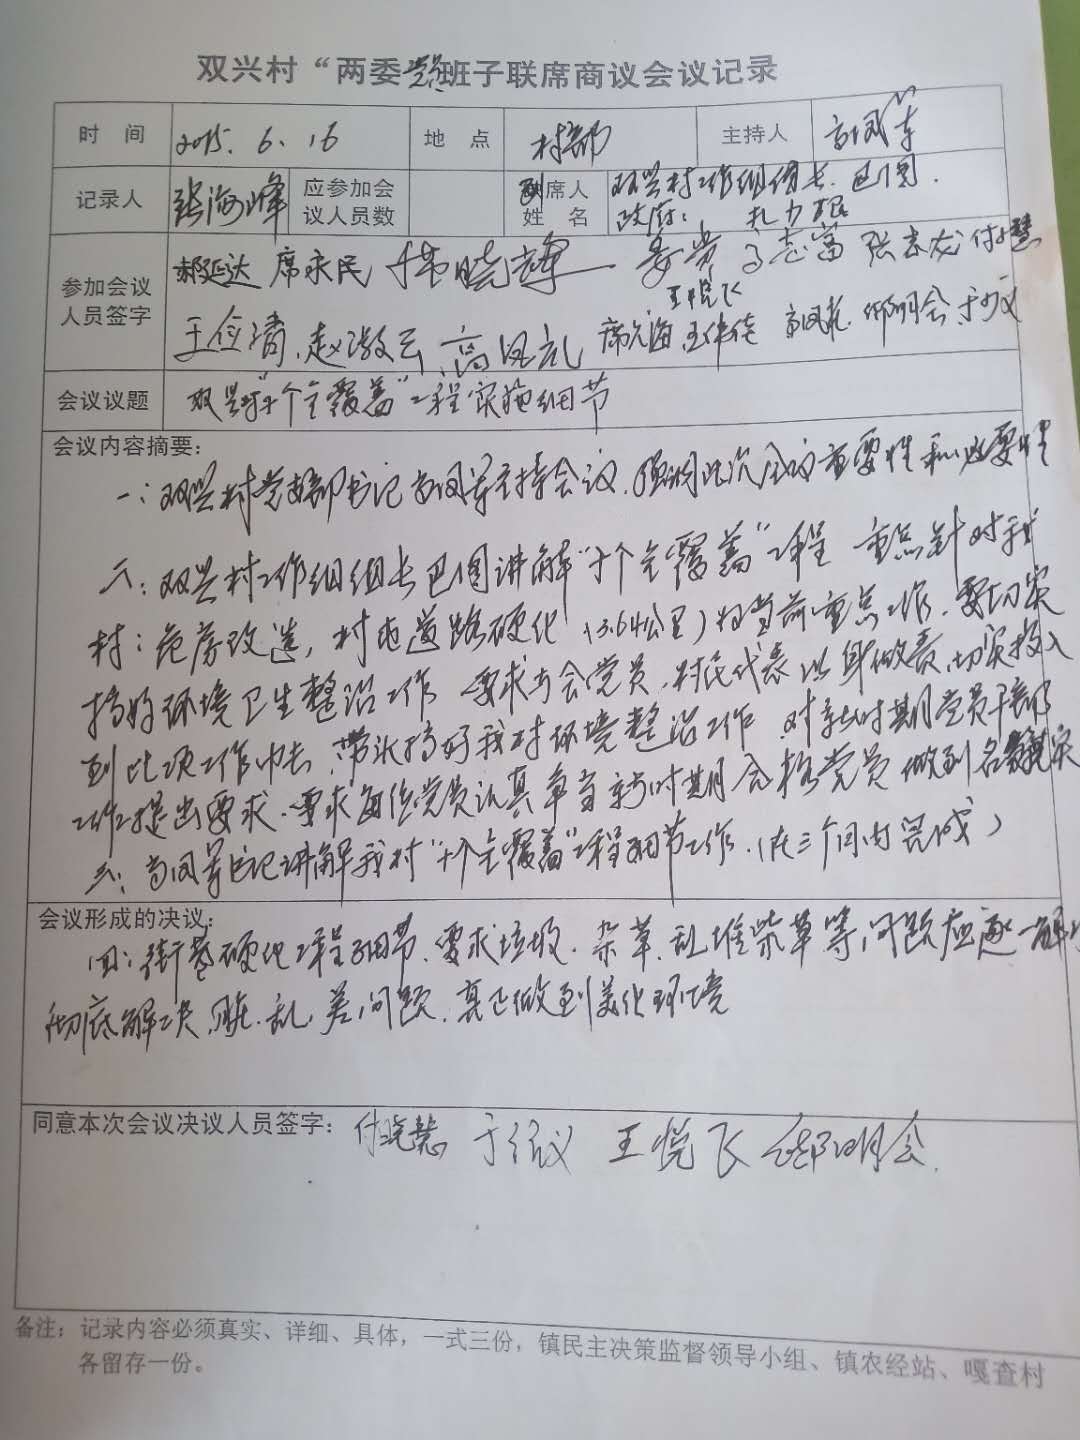 双兴村“两委”班子联席商议会议记录
时 间 2015.6.16 地 点 村部 主持人 高凤军
记录人 张海峰 应参加会议人员数 列席人姓名 双兴村工作组组长:巴图.
政府:
参加会议人员签字 郝延达 席永民 晓辉 姜党 志富 张志龙 付晓慧
王悦飞
王俭清 赵激云 高凤礼 席允海 王伟佳 高凤礼 邰明会 于少义
会议议题 双兴村“十个全覆盖”工程实施细节
会议内容摘要:
一:双兴村党支部书记高凤军主持会议.强调此次会议重要性和必要性
二:双兴村工作组组长巴图讲解“十个全覆盖”工程 重点针对我
村:危房改造,村屯道路硬化(3.64公里)为当前重点工作.要切实
搞好环境卫生整治工作 要求与会党员,村民代表以身做责,切实投入
到此项工作中去,带头搞好我村环境整治工作 对新时期党员干部
工作提出要求.要求每位党员认真争当新时期合格党员 做到名副其实
三:高凤军书记讲解我村“十个全覆盖”工程细节工作.(在三个月内完成)
会议形成的决议:
四:街巷硬化工程细节.要求垃圾.杂草.乱堆柴草等问题应逐一解决
彻底解决脏.乱.差问题.真正做到美化环境
同意本次会议决议人员签字: 付晓慧 于议 王悦飞 邰明会
备注:记录内容必须真实、详细、具体,一式三份,镇民主决策监督领导小组、镇农经站、嘎查村
各留存一份。